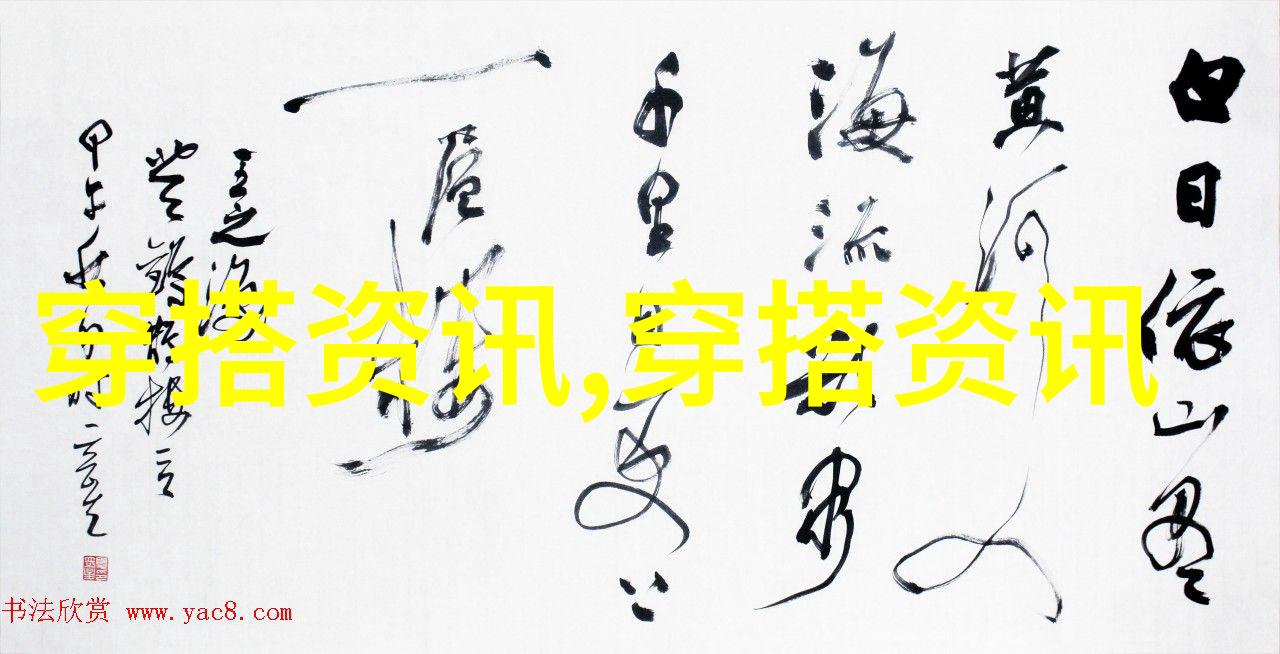 白日依山尽
黄河入
海流欲穷
千里目更上
一层楼
王之涣
登鹳雀楼
甲午秋月
穿搭资讯,穿搭资讯
书法欣赏 www.yac8.com